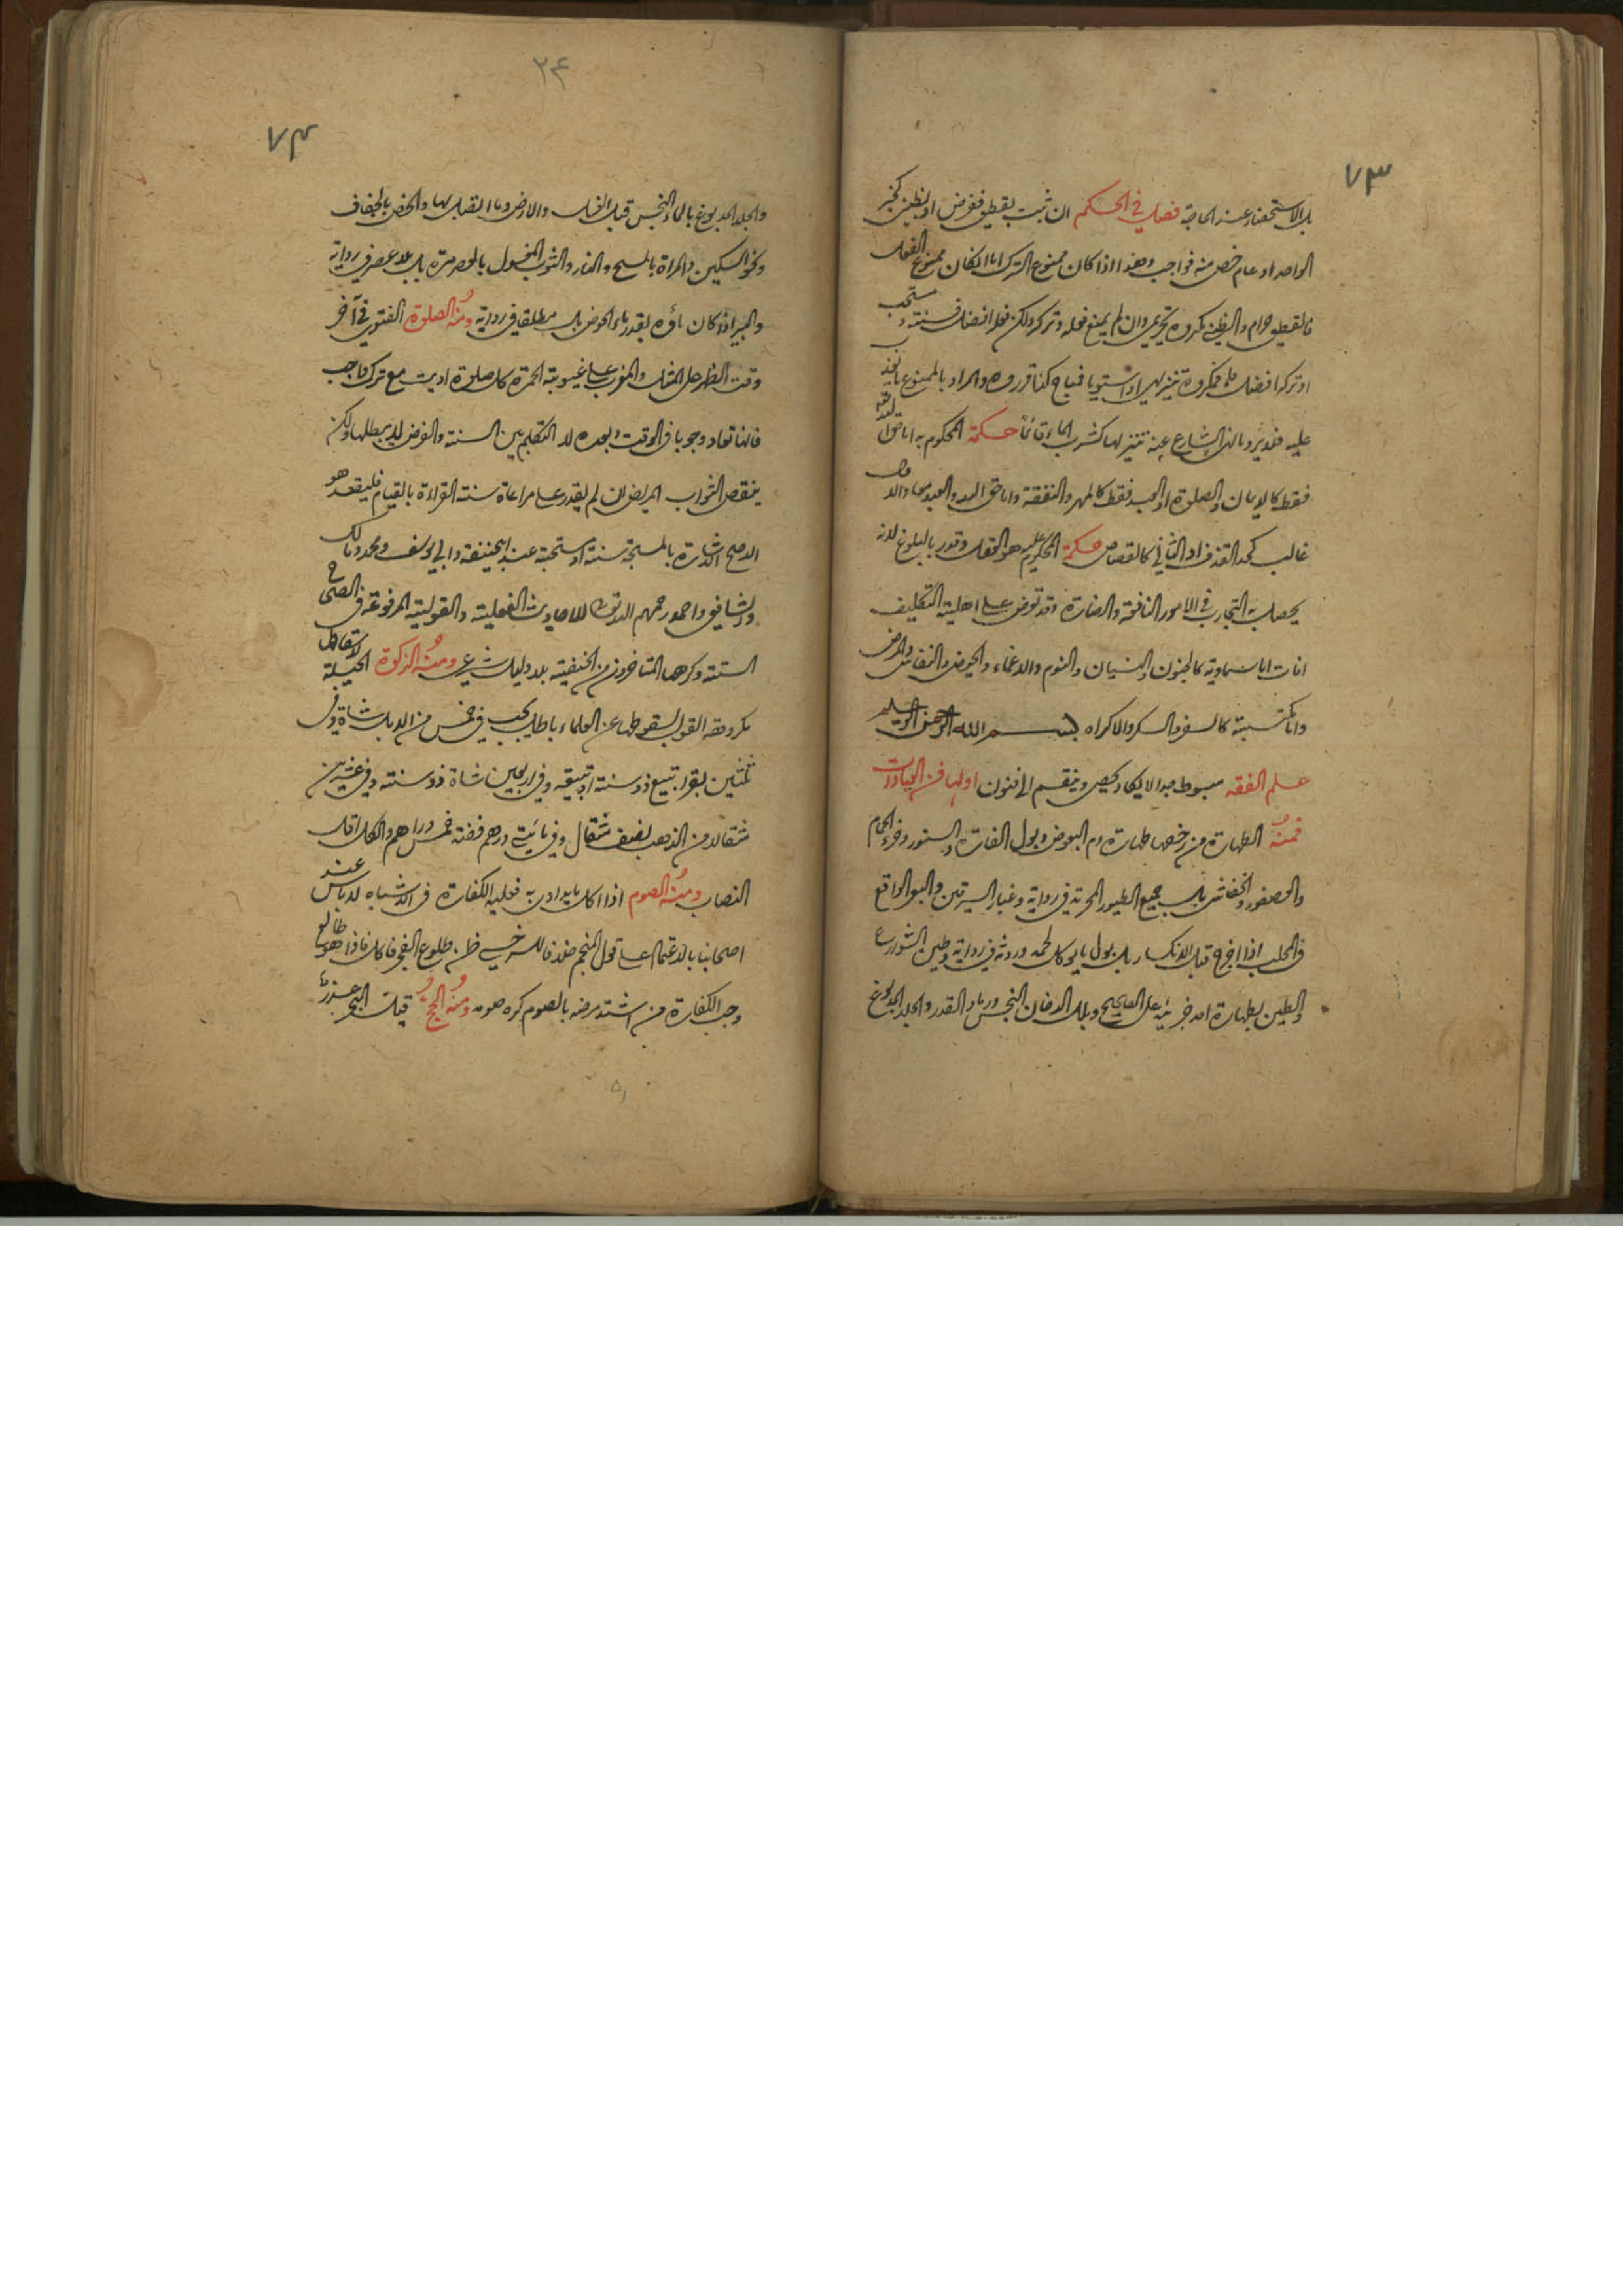 ٧٣
بل الاستحضار عند الحاجة فصل في الحكم ان ثبت بقطعي ففرض او بظني كخبر
الواحد او عام خص منه فواجب وهذا اذا كان ممنوع الترك اما اذا كان ممنوع الفعل
فالقطعي حرام والظني مكروه تحريمي وان لم يمنع فعله وتركه ولكن فعله افضل فسنة ومستحب
او تركه افضل فمكروه تنزيهي او استويا فمباح كذا قرروه والمراد بالممنوع
عليه فلا يرد ما نهى الشارع عنه تنزيها كشرب الماء قائما حكمة المحكوم به اما حق الله تعالى
فقط كالايمان والصلوة او العبد فقط كالمهر والنفقة واما حق الله والعبد معا والاول
غالب كحد القذف او الثاني كالقصاص حكمة المحكوم عليه هو العقل وقدر بالبلوغ لانه
يحصل به التجارب في الامور النافعة والضارة وقد تعرض على اهلية التكليف
افات اما سماوية كالجنون والنسيان والنوم والاغماء والحيض والنفاس والمرض
واما مكتسبة كالسفر والسكر والاكراه بسم الله الرحمن الرحيم
علم الفقه مبسوط جدا لا يكاد يحصى وينقسم الى فنون اولها فن العبادات
فمنه الطهارة من رخصها طهارة دم البعوض وبول الفارة والسنور وخرء الحمام
والعصفور والخفاش بل جميع الطيور المحرمة في رواية وغبار السرقين والبعر الواقع
في الحلب اذا اخرج قبل الانكسار بل بول ما يوكل لحمه وروثه في رواية وطين الشوارع
والطين بطهارة احد جزئيه على الصحيح وبلل الدخان النجس ورماد القذر والجلد المدبوغ
٢٤
٧٤
والجلد المدبوغ بالماء النجس قبل الغسل والارض وما اتصل بها والخف بالجفاف
ونحو السكين والمراة بالمسح والنار والثوب المغسول بالعصر مرة بل بلا عصر في رواية
والبير اذا كان ماؤه بقدر ماء الحوض بل مطلقا في رواية ومنه الصلوة الفتوى في آخر
وقت الظهر على المثل والمغرب على غيبوبة الحمرة كل صلوة اديت مع ترك واجب
فانها تعاد وجوبا في الوقت وبعده لا التكلم بين السنة والفرض لا يبطلها ولكن
ينقص الثواب المريض ان لم يقدر على مراعاة سنة القراءة بالقيام فليقعد هو
الاصح الاشارة بالمسبحة سنة او مستحبة عند ابي حنيفة وابي يوسف ومحمد ومالك
والشافعي واحمد رحمهم الله تعالى للاحاديث الفعلية والقولية المرفوعة في الصحاح
الستة وكرهها المتاخرون من الحنفية بلا دليل شرعي ومنه الزكوة الحيلة لاسقاطها
مكروهة القول بسقوطها عن العلماء باطل يجب في خمس من الابل شاة وفي
ثلثين بقرا تبيع ذو سنة او تبيعة وفي اربعين شاة شاة ذو سنة وفي عشرين
مثقالا من الذهب نصف مثقال وفي مائتي درهم فضة خمس دراهم والكل اقل
النصاب ومنه الصوم اذا اكل ما يداوى به فعليه الكفارة في الاشباه لا باس عند
اصحابنا بالاعتماد على قول المنجم خلافا للسرخسي ظن طلوع الفجر فاكل فاذا هو طالع
وجب الكفارة من اشتد مرضه بالصوم كره صومه ومنه الحج